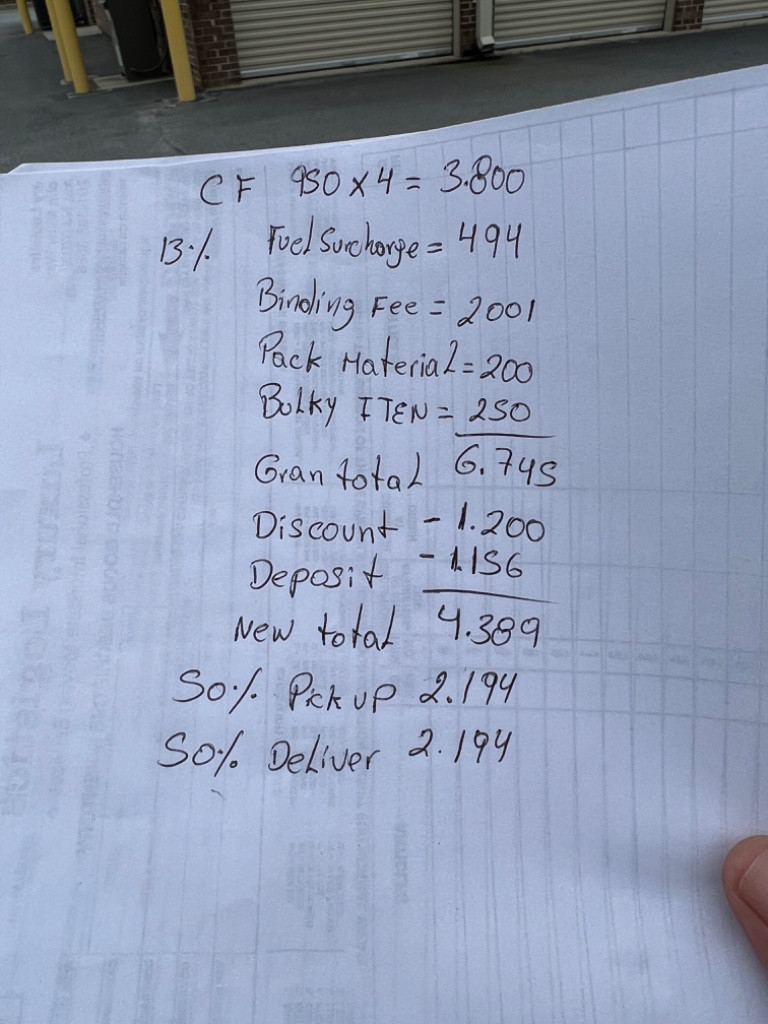 CF 950 x 4 = 3.800
13% Fuel Surcharge = 494
Binding Fee = 2001
Pack Material = 200
Bulky ITEN = 250
Gran total 6.745
Discount - 1.200
Deposit - 1.156
New total 4.389
50% Pick up 2.194
50% Deliver 2.194